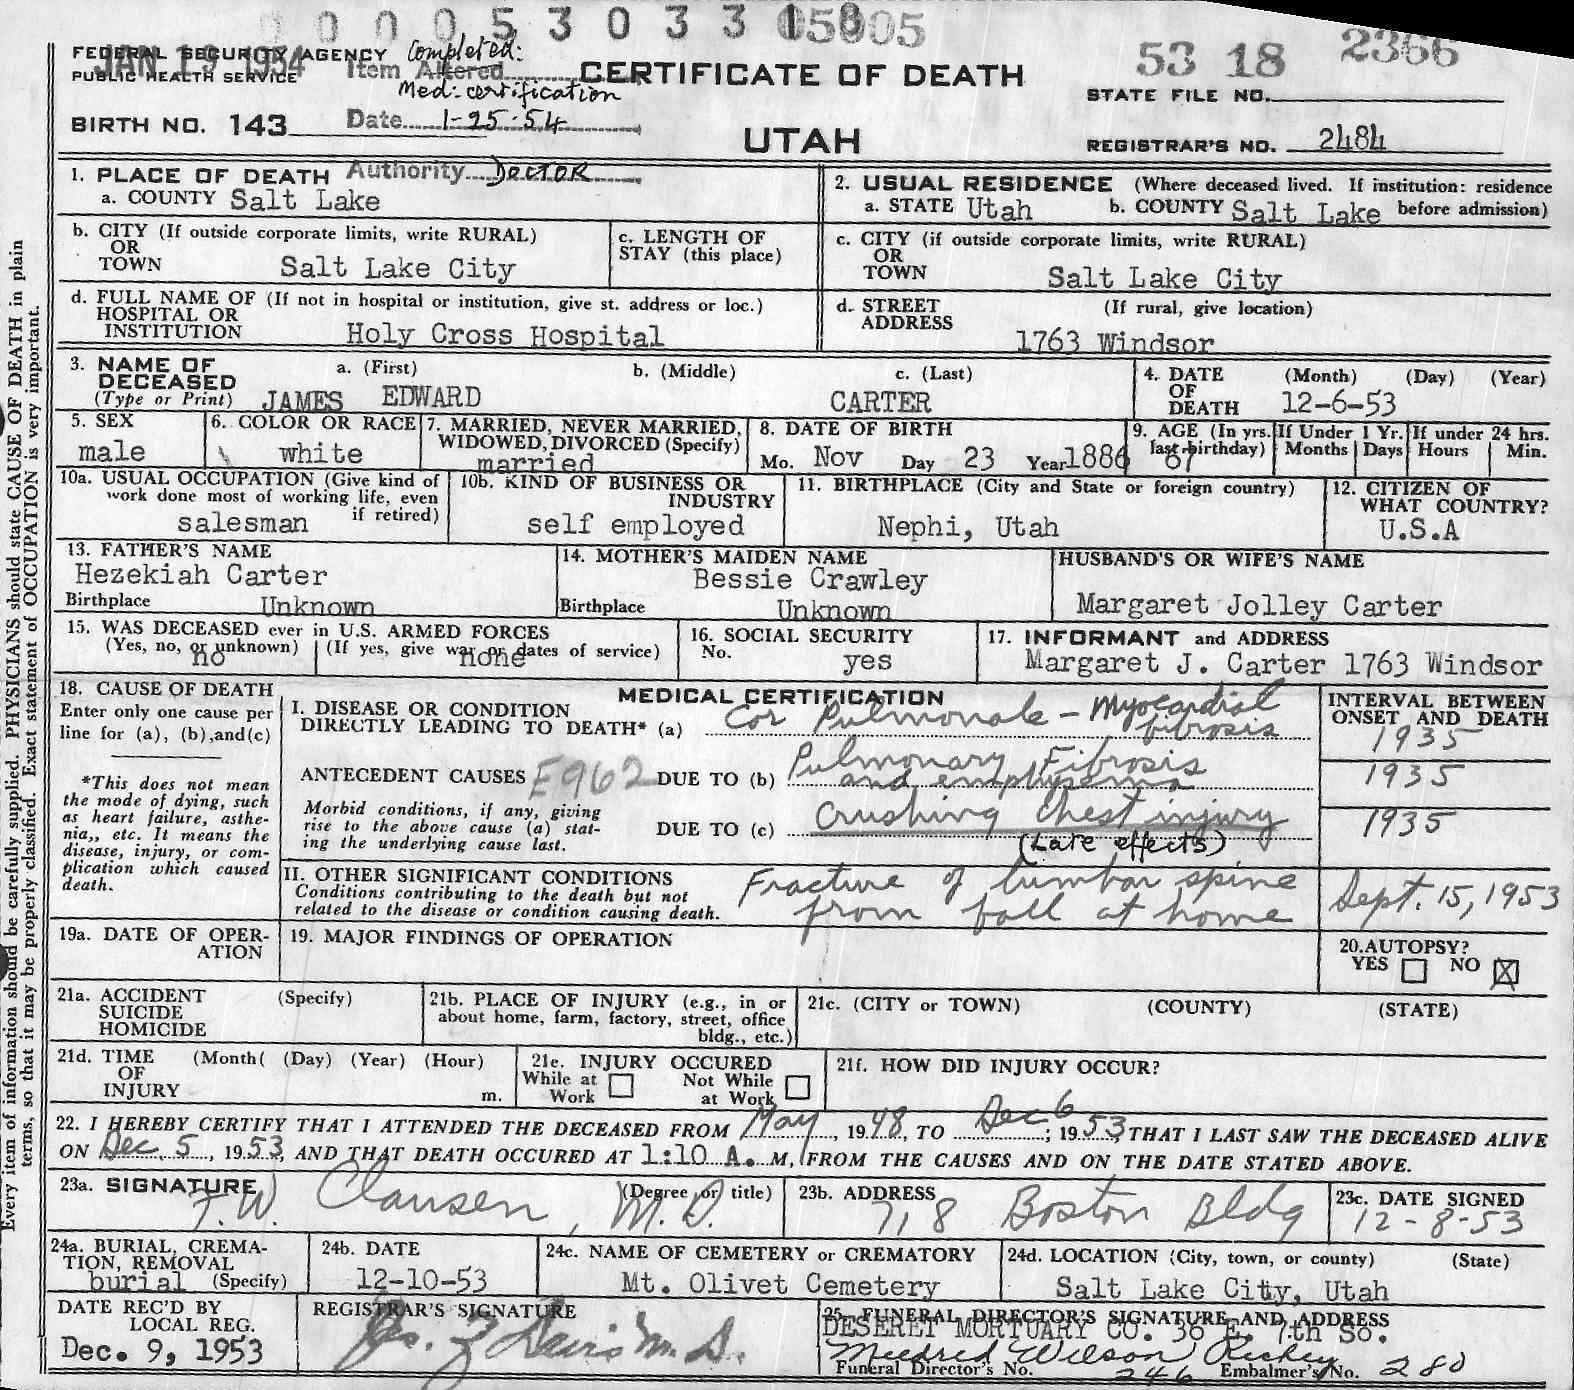 0 0 0 5 3 0 3 3 1 5805
JAN 19 1954
FEDERAL SECURITY AGENCY
PUBLIC HEALTH SERVICE
Completed:
Item Altered
Med: certification
CERTIFICATE OF DEATH
53 18 2366
STATE FILE NO.
BIRTH NO. 143
Date 1-25-54
UTAH
REGISTRAR'S NO. 2484
1. PLACE OF DEATH Authority DOCTOR
a. COUNTY Salt Lake
2. USUAL RESIDENCE (Where deceased lived. If institution: residence
a. STATE Utah b. COUNTY Salt Lake before admission)
b. CITY (If outside corporate limits, write RURAL)
OR
TOWN Salt Lake City
c. LENGTH OF
STAY (this place)
c. CITY (if outside corporate limits, write RURAL)
OR
TOWN Salt Lake City
d. FULL NAME OF (If not in hospital or institution, give st. address or loc.)
HOSPITAL OR
INSTITUTION Holy Cross Hospital
d. STREET (If rural, give location)
ADDRESS
1763 Windsor
3. NAME OF
DECEASED
(Type or Print)
a. (First) b. (Middle) c. (Last)
JAMES EDWARD CARTER
4. DATE (Month) (Day) (Year)
OF
DEATH 12-6-53
5. SEX
male
6. COLOR OR RACE
white
7. MARRIED, NEVER MARRIED,
WIDOWED, DIVORCED (Specify)
married
8. DATE OF BIRTH
Mo. Nov Day 23 Year 1886
9. AGE (In yrs. last birthday) 67
If Under 1 Yr.
Months Days
If under 24 hrs.
Hours Min.
10a. USUAL OCCUPATION (Give kind of
work done most of working life, even
if retired)
salesman
10b. KIND OF BUSINESS OR
INDUSTRY
self employed
11. BIRTHPLACE (City and State or foreign country)
Nephi, Utah
12. CITIZEN OF
WHAT COUNTRY?
U.S.A
13. FATHER'S NAME
Hezekiah Carter
Birthplace Unknown
14. MOTHER'S MAIDEN NAME
Bessie Crawley
Birthplace Unknown
HUSBAND'S OR WIFE'S NAME
Margaret Jolley Carter
15. WAS DECEASED ever in U.S. ARMED FORCES
(Yes, no, or unknown) (If yes, give war or dates of service)
no none
16. SOCIAL SECURITY
No. yes
17. INFORMANT and ADDRESS
Margaret J. Carter 1763 Windsor
18. CAUSE OF DEATH
Enter only one cause per
line for (a), (b), and (c)
*This does not mean
the mode of dying, such
as heart failure, asthe-
nia,, etc. It means the
disease, injury, or com-
plication which caused
death.
MEDICAL CERTIFICATION
I. DISEASE OR CONDITION
DIRECTLY LEADING TO DEATH* (a) Cor Pulmonale - Myocardial
fibrosis
ANTECEDENT CAUSES E962 DUE TO (b) Pulmonary Fibrosis
and emphysema
Morbid conditions, if any, giving
rise to the above cause (a) stat-
ing the underlying cause last.
DUE TO (c) Crushing Chest injury
(Late effects)
INTERVAL BETWEEN
ONSET AND DEATH
1935
1935
1935
II. OTHER SIGNIFICANT CONDITIONS
Conditions contributing to the death but not
related to the disease or condition causing death.
Fracture of lumbar spine
from fall at home
Sept. 15, 1953
19a. DATE OF OPER-
ATION
19. MAJOR FINDINGS OF OPERATION
20. AUTOPSY?
YES NO X
21a. ACCIDENT (Specify)
SUICIDE
HOMICIDE
21b. PLACE OF INJURY (e.g., in or
about home, farm, factory, street, office
bldg., etc.)
21c. (CITY or TOWN) (COUNTY) (STATE)
21d. TIME (Month( (Day) (Year) (Hour)
OF
INJURY m.
21e. INJURY OCCURED
While at Work
Not While at Work
21f. HOW DID INJURY OCCUR?
22. I HEREBY CERTIFY THAT I ATTENDED THE DECEASED FROM May, 1948, TO Dec 6; 1953, THAT I LAST SAW THE DECEASED ALIVE
ON Dec. 5, 1953, AND THAT DEATH OCCURED AT 1:10 A. M, FROM THE CAUSES AND ON THE DATE STATED ABOVE.
23a. SIGNATURE (Degree or title)
F.W. Clausen, M.D.
23b. ADDRESS
718 Boston Bldg
23c. DATE SIGNED
12-8-53
24a. BURIAL, CREMA-
TION, REMOVAL
burial (Specify)
24b. DATE
12-10-53
24c. NAME OF CEMETERY or CREMATORY
Mt. Olivet Cemetery
24d. LOCATION (City, town, or county) (State)
Salt Lake City, Utah
DATE REC'D BY
LOCAL REG.
Dec. 9, 1953
REGISTRAR'S SIGNATURE
Davis M.D.
25. FUNERAL DIRECTOR'S SIGNATURE AND ADDRESS
DESERET MORTUARY CO. 36 E. 7th So.
Mildred Wilson Richey
Funeral Director's No. 246 Embalmer's No. 280
Every item of information should be carefully supplied. PHYSICIANS should state CAUSE OF DEATH in plain
terms, so that it may be properly classified. Exact statement of OCCUPATION is very important.